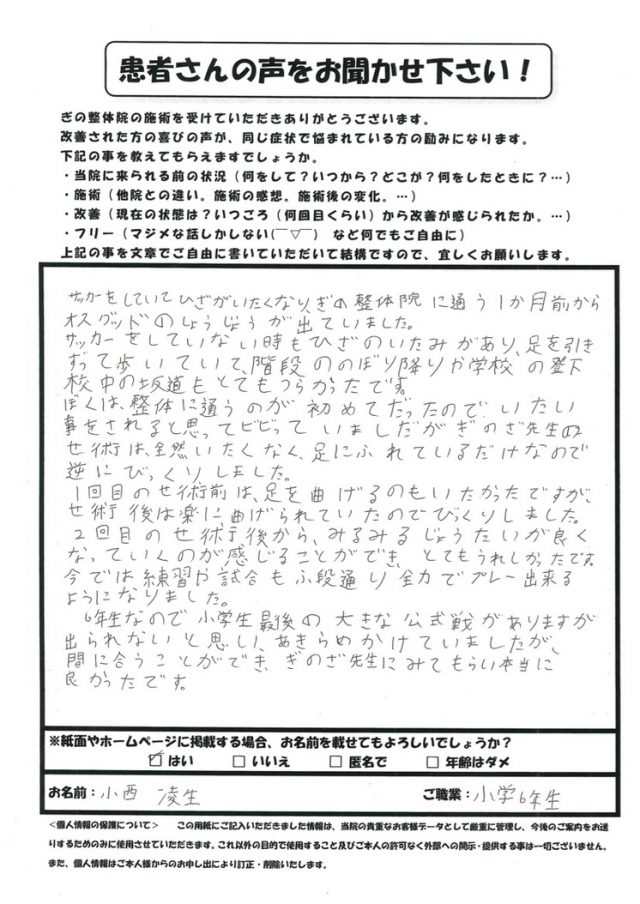 患者さんの声をお聞かせ下さい！
ぎの整体院の施術を受けていただきありがとうございます。
改善された方の喜びの声が、同じ症状で悩まれている方の励みになります。
下記の事を教えてもらえますでしょうか。
・当院に来られる前の状況（何をして？いつから？どこが？何をしたときに？…）
・施術（他院との違い。施術の感想。施術後の変化。…）
・改善（現在の状態は？いつごろ（何回目くらい）から改善が感じられたか。…）
・フリー（マジメな話しかしない(￣▽￣)　など何でもご自由に）
上記の事を文章でご自由に書いていただいて結構ですので、宜しくお願いします。
サッカーをしていてひざがいたくなり、ぎの整体院に通う1か月前から
オスグッドのしょうじょうが出ていました。
サッカーをしていない時もひざのいたみがあり、足を引き
ずって歩いていて、階段ののぼり降りや学校の登下
校中の坂道もとてもつらかったです。
ぼくは、整体に通うのが初めてだったのでいたい
事をされると思ってビビっていましたがぎのざ先生の
せ術は、全然いたくなく、足にふれているだけなので
逆にびっくりしました。
1回目のせ術前は、足を曲げるのもいたかったですが、
せ術後は楽に曲げられていたのでびっくりしました。
2回目のせ術後から、みるみるじょうたいが良く
なっていくのが感じることができ、とてもうれしかったです。
今では練習や試合もふ段通り全力でプレー出来る
ようになりました。
6年生なので小学生最後の大きな公式戦がありますが
出られないと思い、あきらめかけていましたが、
間に合うことができ、ぎのざ先生にみてもらい本当に
良かったです。
※紙面やホームページに掲載する場合、お名前を載せてもよろしいでしょうか？
☑はい　□いいえ　□匿名で　□年齢はダメ
お名前：小西 凌生　ご職業：小学6年生
<個人情報の保護について>　この用紙にご記入いただきました情報は、当院の貴重なお客様データとして厳重に管理し、今後のご案内をお送
りするためのみに使用させていただきます。これ以外の目的で使用すること及びご本人の許可なく外部への開示・提供する事は一切ございません。
また、個人情報はご本人様からのお申し出により訂正・削除いたします。